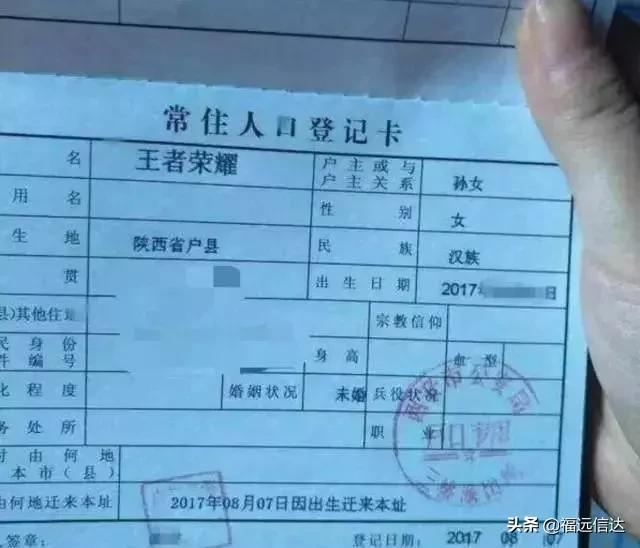 常住人口登记卡
名 王者荣耀 户主或与户主关系 孙女
用名 性别 女
生地 陕西省户县 民族 汉族
贯 出生日期 2017年 日
县)其他住 宗教信仰
民身份
件编号 身高 血型
化程度 婚姻状况 未婚 兵役状况
务处所 职业
时由何地
本市(县)
由何地迁来本址 2017年08月07日因出生迁来本址
人签章: 登记日期: 2017 08 07
头条@福远信达